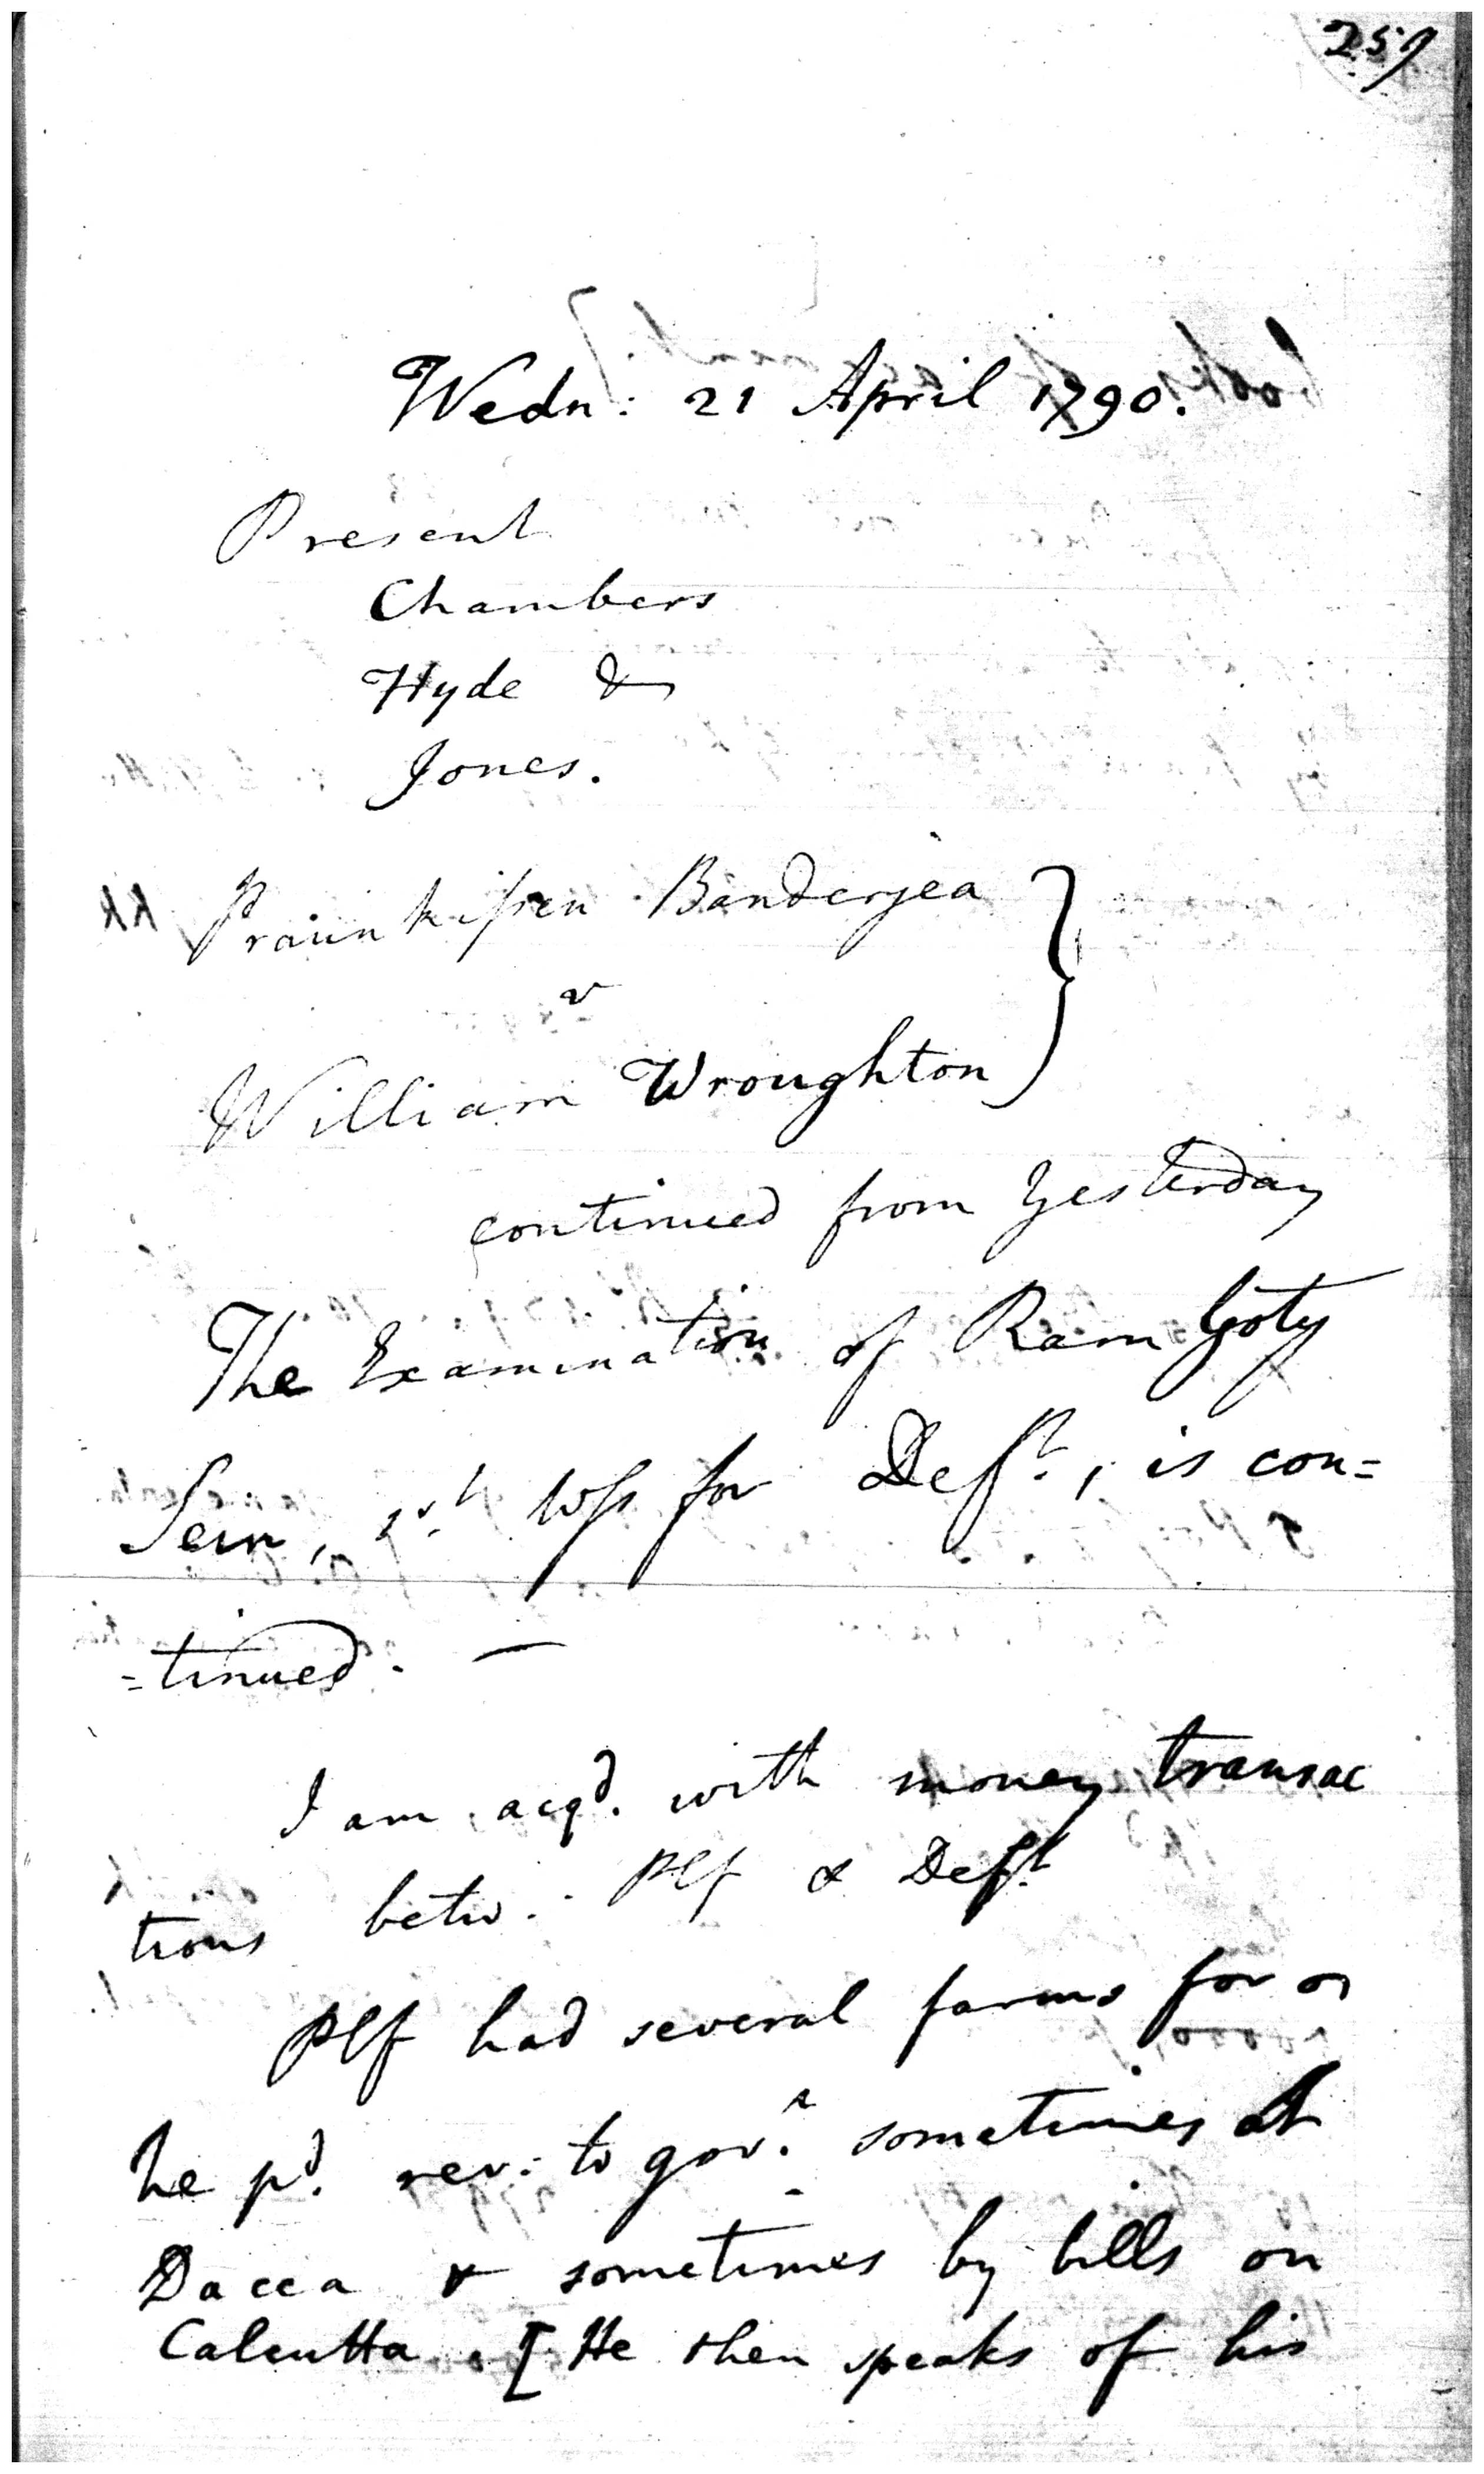 259
Wedn: 21 April 1790.
Present
Chambers
Hyde &
Jones.
Praun kissen Banderjea
v
William Wroughton
continued from Yesterday
The Examination of Ram Goty
Sein, 1st Wss for Deft., is con=
=tinued. —
I am acqd. with money transac
tions betw: Plf & Deft
Plf had several farms for
he pd. rev: to govt. sometimes at
Dacca & sometimes by bills on
Calcutta. [He then speaks of his